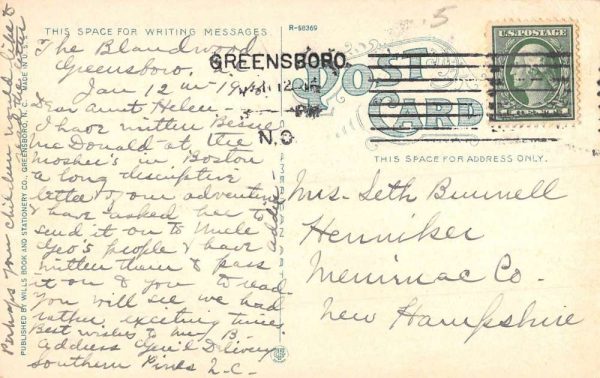 THIS SPACE FOR WRITING MESSAGES
R-68369
The Blandwood
Greensboro, N.C.
Jan 12th
Dear Aunt Helen -
I have written Bessie
McDonald at the
Mosher's in Boston
a long discriptive
letter of our adventures
& have asked her to
send it on to Uncle
Geo's people & have
written them to pass
it on to you to read.
You will see we had
rather exciting times.
Best wishes to Mr B.
Address Gen'l Delivery
Southern Pines N.C.
Perhaps your children would like to
PUBLISHED BY WILLS BOOK AND STATIONERY CO., GREENSBORO, N. C. MADE IN U.S.A.
GREENSBORO.
JAN 12
PM
N.C
5
U.S. POSTAGE
POST
CARD
THIS SPACE FOR ADDRESS ONLY.
Mrs. Seth Bunnell
Henniker
Merrimac Co.
New Hampshire